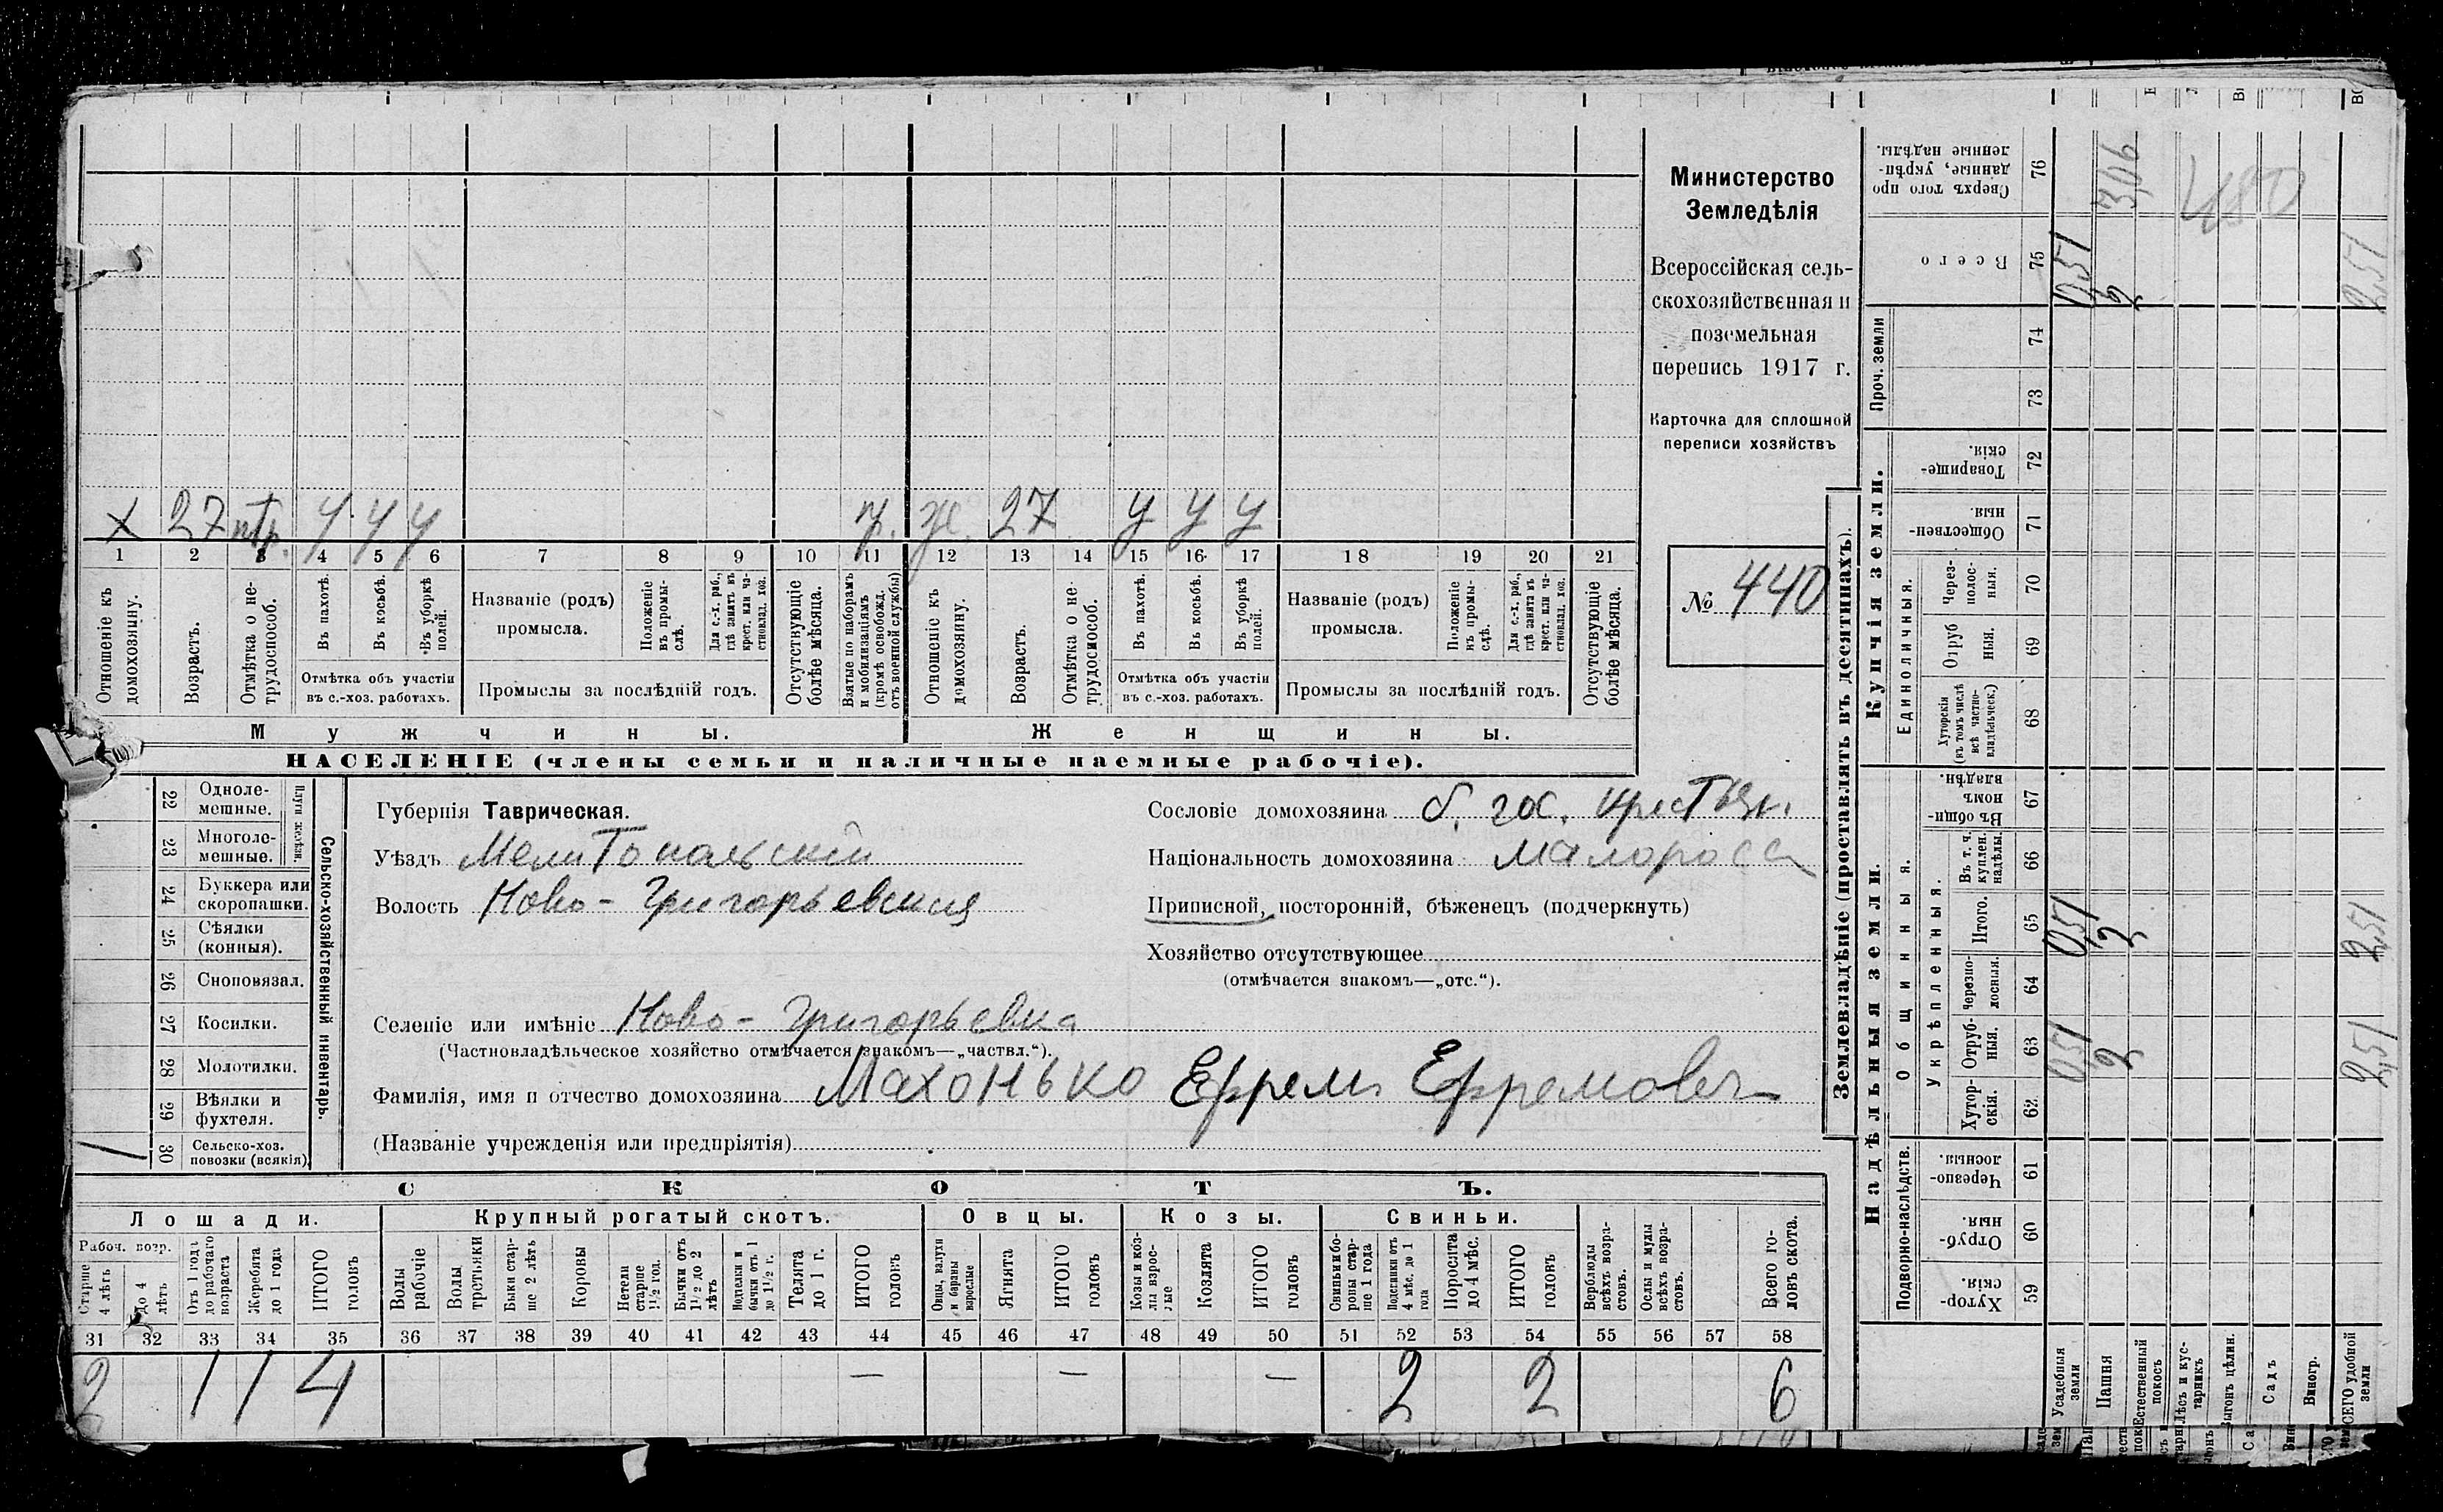 Министерство
Земледѣлія
Всероссійская сель-
скохозяйственная и
поземельная
перепись 1917 г.
Карточка для сплошной
переписи хозяйствъ
№ 440
х 27 у у у ж. 27 у у у
1 2 3 4 5 6 7 8 9 10 11 12 13 14 15 16 17 18 19 20 21
Отношеніе къ домохозяину.
Возрастъ.
Отмѣтка о не-трудоспособ.
Въ пахотѣ.
Въ косьбѣ.
Въ уборкѣ полей.
Отмѣтка объ участіи
въ с.-хоз. работахъ.
Названіе (родъ)
промысла.
Положеніе въ промы-слѣ.
Для с.-х. раб., гдѣ занятъ въ крест. или ча-стновлад. хоз.
Промыслы за послѣдній годъ.
Отсутствующіе болѣе мѣсяца.
Взятые по наборамъ и мобилизаціямъ (кромѣ освобожд. отъ военной службы)
Отношеніе къ домохозяину.
Возрастъ.
Отмѣтка о не-трудоспособ.
Въ пахотѣ.
Въ косьбѣ.
Въ уборкѣ полей.
Отмѣтка объ участіи
въ с.-хоз. работахъ.
Названіе (родъ)
промысла.
Положеніе въ промы-слѣ.
Для с.-х. раб., гдѣ занята въ крест. или ча-стновлад. хоз.
Промыслы за послѣдній годъ.
Отсутствующіе болѣе мѣсяца.
Мужчины. Женщины.
НАСЕЛЕНІЕ (члены семьи и наличные наемные рабочіе).
Сельско-хозяйственный инвентарь.
Плуги желѣзн.
22 Одноле-
мешные.
23 Многоле-
мешные.
24 Буккера или
скоропашки.
25 Сѣялки
(конныя).
26 Сноповязал.
27 Косилки.
28 Молотилки.
29 Вѣялки и
фухтеля.
30 Сельско-хоз.
повозки (всякія)
1
Губернія Таврическая.
Уѣздъ Мелитопольскій
Волость Ново-Григорьевская
Сословіе домохозяина б. гос. крестьян.
Національность домохозяина малоросс
Приписной, посторонній, бѣженецъ (подчеркнуть)
Хозяйство отсутствующее
(отмѣчается знакомъ—„отс.“).
Селеніе или имѣніе Ново-Григорьевка
(Частновладѣльческое хозяйство отмѣчается знакомъ—„частвл.“).
Фамилія, имя и отчество домохозяина Махонько Ефрем Ефремович
(Названіе учрежденія или предпріятія)
СКОТЪ.
Лошади. Крупный рогатый скотъ. Овцы. Козы. Свиньи.
Рабоч. возр.
Старше 4 лѣтъ
До 4 лѣтъ
Отъ 1 года до рабочаго возраста
Жеребята до 1 года
ИТОГО головъ
Волы рабочіе
Волы третьяки
Быки стар-ше 2 лѣтъ
Коровы
Нетели старше 1½ год.
Бычки отъ 1½ до 2 лѣтъ
Телята до 1 г.
ИТОГО головъ
Овцы, валухи и бараны взрослые
Ягнята
ИТОГО головъ
Козы и коз-лы взрос-лые
Козлята
ИТОГО головъ
Свиньи и бо-ровы стар-ше 1 года
Подсвинки отъ 4 мѣс. до 1 года
Поросята до 4 мѣс.
ИТОГО головъ
Верблюды всѣхъ возра-стовъ.
Ослы и мулы всѣхъ возра-стовъ.
Всего го-ловъ скота.
31 32 33 34 35 36 37 38 39 40 41 42 43 44 45 46 47 48 49 50 51 52 53 54 55 56 57 58
2 1 1 4 — — — 2 2 6
Землевладѣніе (проставлять въ десятинахъ).
Надѣльныя земли. Купчія земли. Проч. земли
Подворно-наслѣдств.
Общинныя.
Укрѣпленныя.
Единоличныя.
Хутор-скія. 59
Отруб-ныя. 60
Черезпо-лосныя. 61
Хутор-скія. 62
Отруб-ныя. 63
Черезпо-лосныя. 64
Итого. 65
Въ т. ч. куплен. надѣлы. 66
Въ общин-номъ владѣн. 67
Хуторскія (въ томъ числѣ всѣ частно-владѣльческ.) 68
Отруб-ныя. 69
Через-полос-ныя. 70
Обществен-ныя. 71
Товарище-скія. 72
73
74
Всего 75
Сверхъ того про-данные, укрѣп-ленные надѣлы. 76
Усадебныя земли
Пашня
Естественный покосъ
Лѣсъ и кус-тарникъ
Выгонъ цѣлин.
Садъ
Виногр.
ВСЕГО удобной земли
051 2 251
051 2 251
051 2 251
306
480